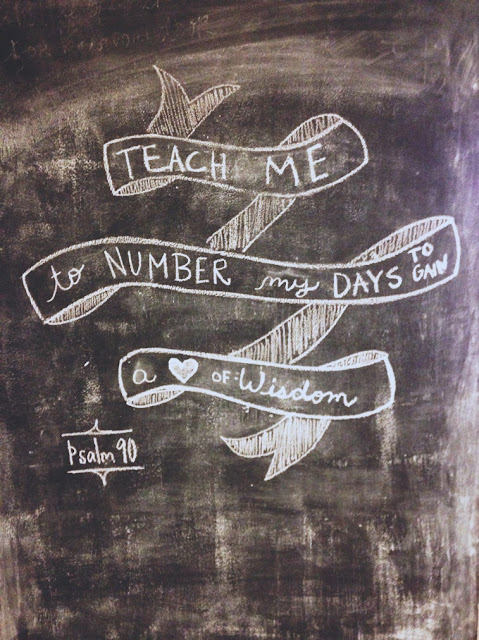 TEACH ME
to NUMBER my DAYS TO GAIN
a ♥ OF: Wisdom
Psalm 90